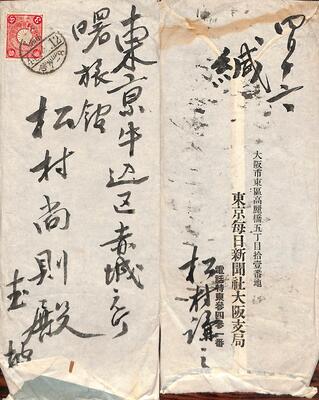 東京牛込区赤城元町
曙旅館
松村尚則殿
四ノ六
緘
大阪市東區高麗橋五丁目拾壹番地
東京毎日新聞社大阪支局
電話特東參四參一番
松村